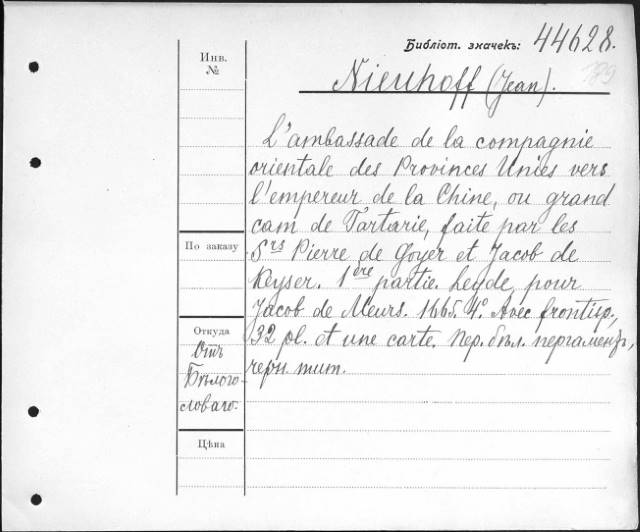 Библіот. значекъ: 44628.
189
Инв.
№
Nieuhoff (Jean).
L'ambassade de la compagnie
orientale des Provinces Unies vers
l'empereur de la Chine, ou grand
cam de Tartarie, faite par les
Srs Pierre de Goyer et Jacob de
Keyser. 1ère partie. Leyde, pour
Jacob de Meurs. 1665. 4º. Avec frontisp.,
32 pl. et une carte. Пер. бѣл. пергаментъ,
черн. тит.
По заказу
Откуда
Отъ
Бѣлого-
словаго.
Цѣна